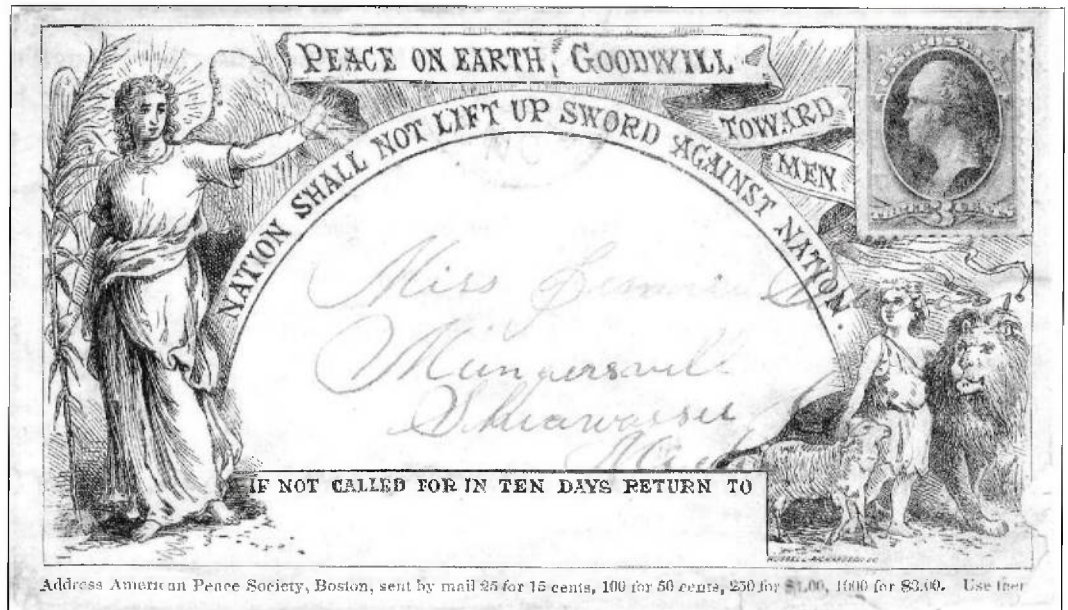 PEACE ON EARTH, GOODWILL
TOWARD
MEN
NATION SHALL NOT LIFT UP SWORD AGAINST NATION.
NC
THREE 3 CENTS
Miss Jennie
Mungersvill
Shiawassee
Mich
IF NOT CALLED FOR IN TEN DAYS RETURN TO
Address American Peace Society, Boston, sent by mail 25 for 15 cents, 100 for 50 cents, 250 for $1.00, 1000 for $3.00. Use